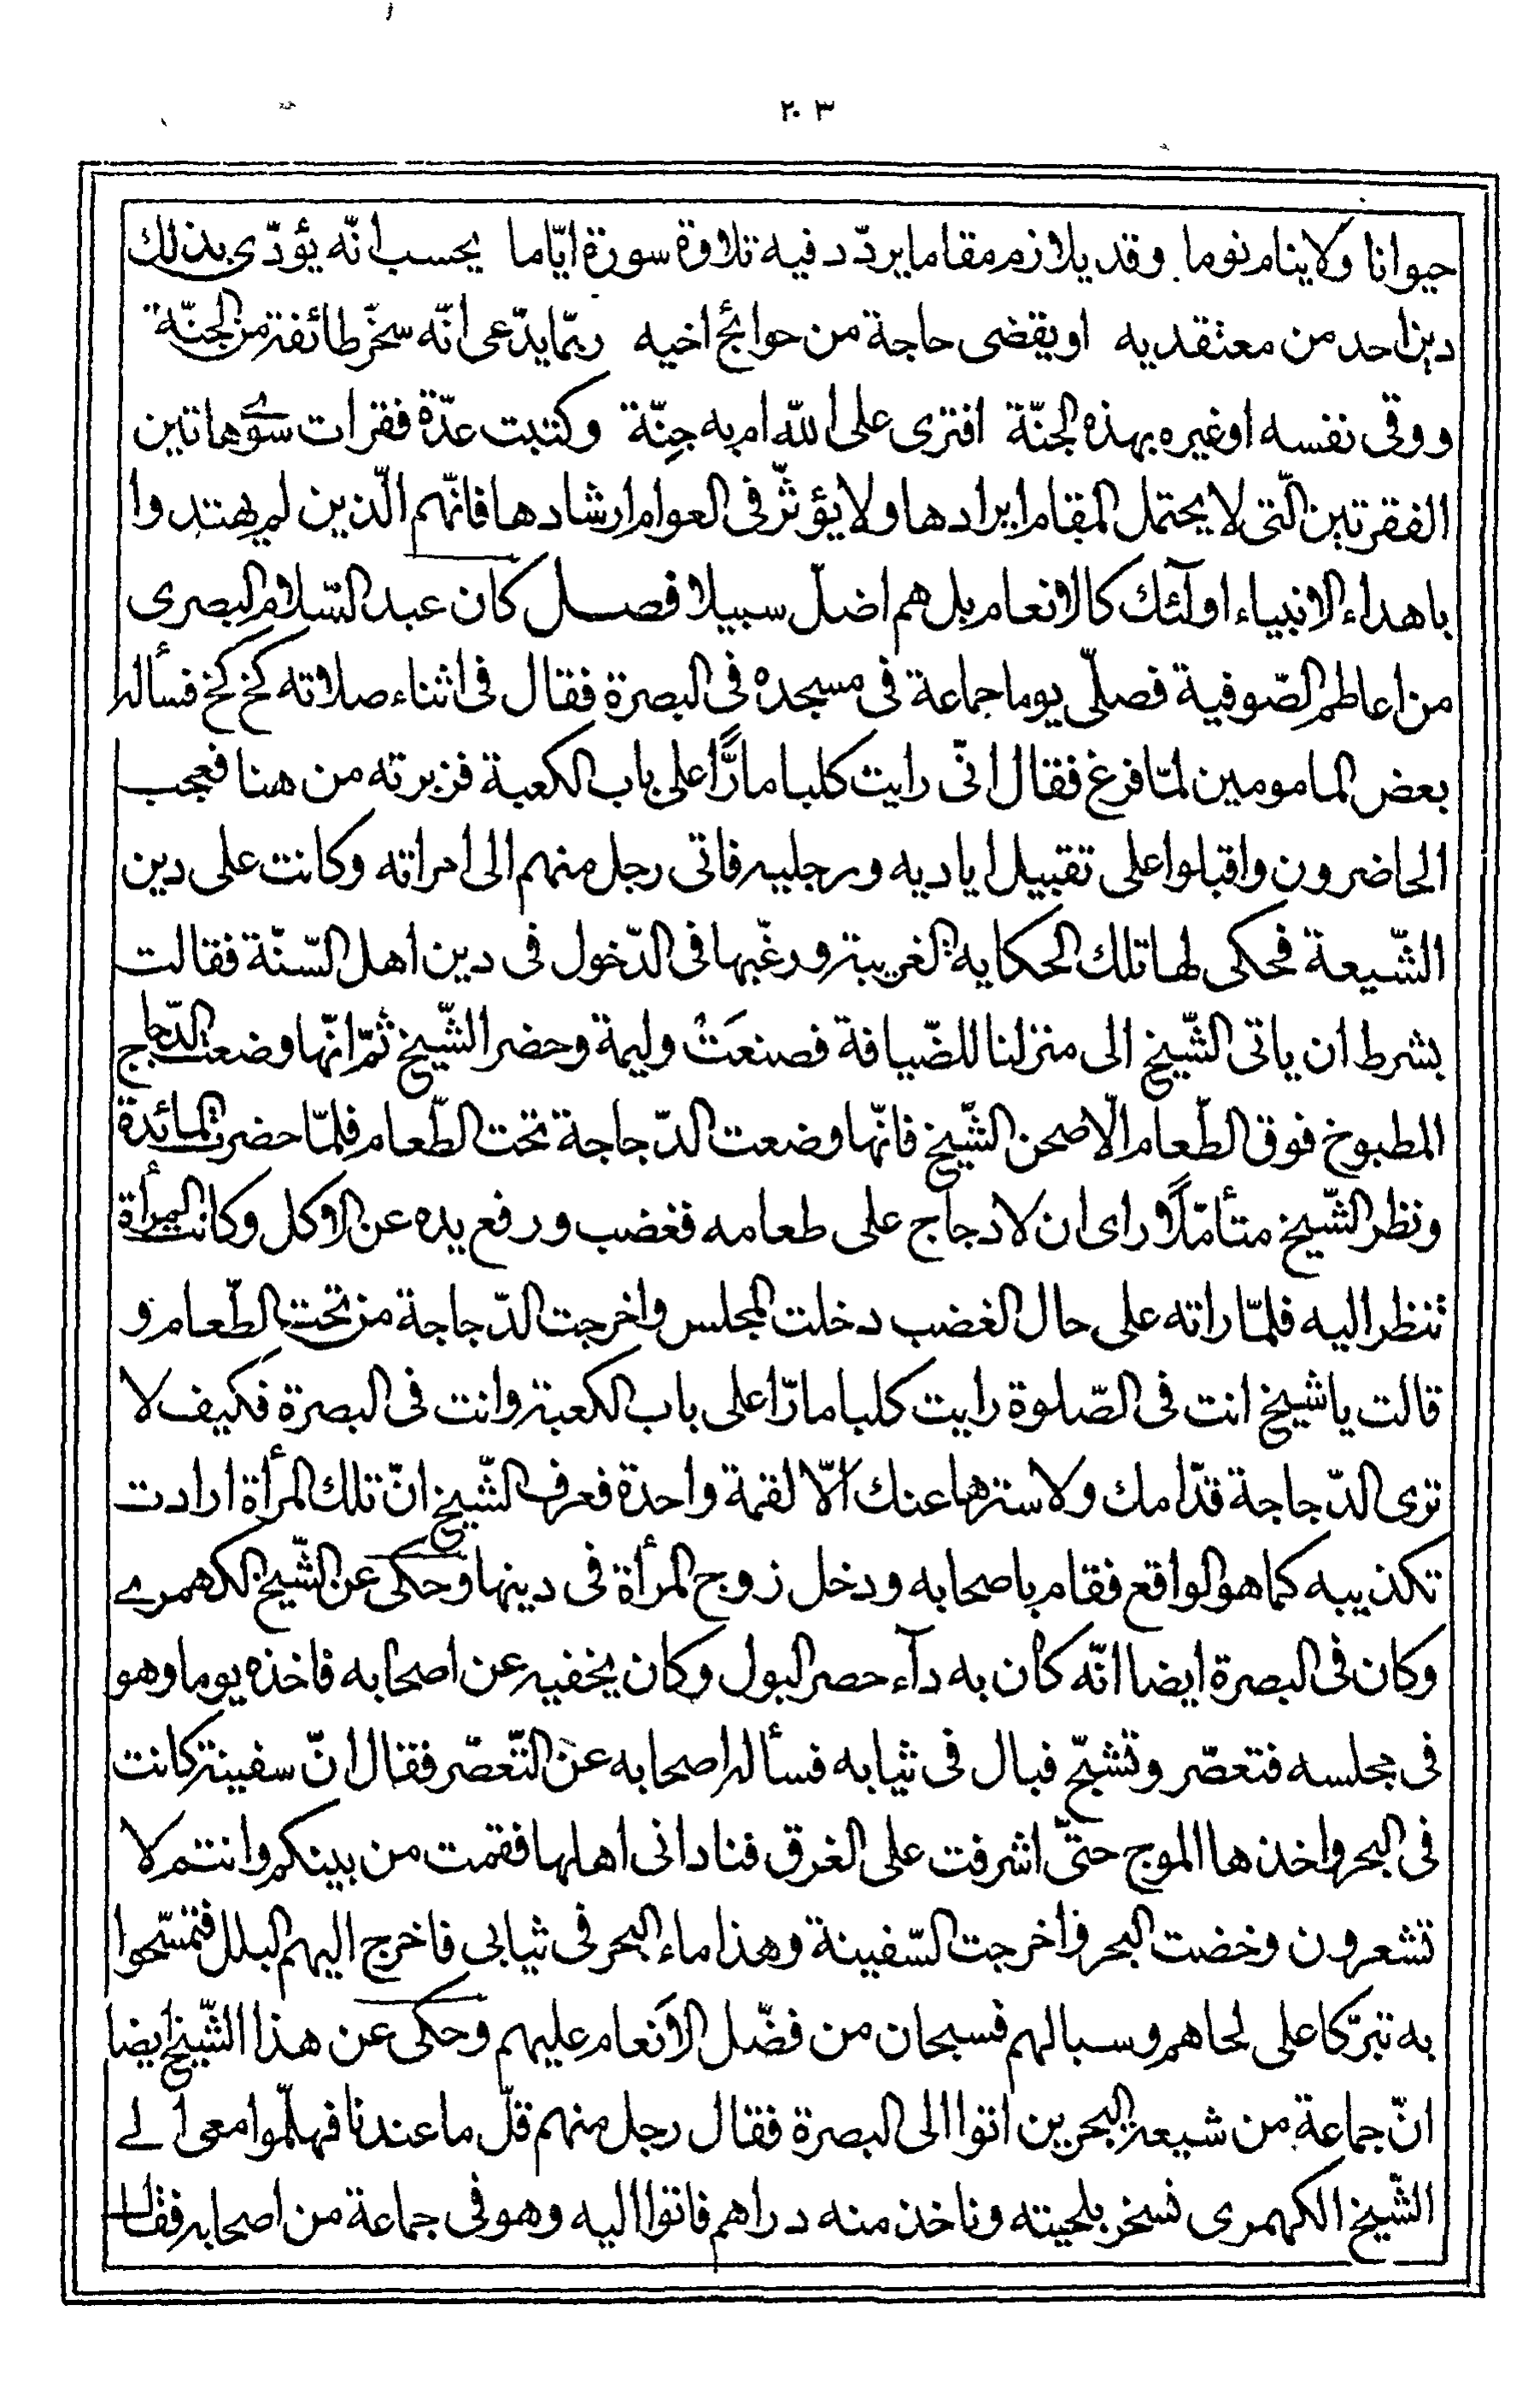 ٢٠٣
حيوانا ولاينام نوما وقد يلازم مقاما يردّد فيه تلاوة سورة ايّاما يحسب انّه يؤدّى بذلك
دين احد من معتقديه او يقضى حاجة من حوائج اخيه ربّما يدّعى انّه سخّر طائفة من الجنّة
ووقى نفسه او غيره بهذه الجنّة افترى على اللّه ام به جِنّة وكتبت عدّة فقرات سوى هاتين
الفقرتين الّتى لا يحتمل المقام ايرادها ولا يؤثّر فى العوام ارشادها فانّهم الّذين لم يهتدوا
باهداء الانبياء اولٓئك كالانعام بل هم اضلّ سبيلا فصل كان عبد السّلام البصرى
من اعاظم الصّوفية فصلّى يوما جماعة فى مسجده فى البصرة فقال فى اثناء صلاته كخ كخ فسأله
بعض المامومين لمّا فرغ فقال انّى رايت كلبا مارًّا على باب الكعبة فزبرته من هنا فعجب
الحاضرون واقبلوا على تقبيل اياديه ورجليه فاتى رجل منهم الى امراته وكانت على دين
الشّيعة فحكى لها تلك الحكاية الغريبة ورغّبها فى الدّخول فى دين اهل السّنّة فقالت
بشرط ان ياتى الشّيخ الى منزلنا للضّيافة فصنعَتْ وليمة وحضر الشّيخ ثمّ انّها وضعت الدّجاج
المطبوخ فوق الطّعام الّا صحن الشّيخ فانّها وضعت الدّجاجة تحت الطّعام فلمّا حضرت المائدة
ونظر الشّيخ متأمّلًا وراى ان لا دجاج على طعامه فغضب ورفع يده عن الاكل وكانت المرأة
تنظر اليه فلمّا راته على حال الغضب دخلت المجلس واخرجت الدّجاجة من تحت الطّعام و
قالت يا شيخ انت فى الصّلوة رايت كلبا مارّا على باب الكعبة وانت فى البصرة فكيف لا
ترى الدّجاجة قدّامك ولا سترها عنك الّا لقمة واحدة فعرف الشّيخ انّ تلك المرأة ارادت
تكذيبه كما هو الواقع فقام باصحابه ودخل زوج المرأة فى دينها وحكى عن الشّيخ الكهمرى
وكان فى البصرة ايضا انّه كان به دآء حصر البول وكان يخفيه عن اصحابه فاخذه يوما وهو
فى مجلسه فتعصّر وتشبّح فبال فى ثيابه فسأله اصحابه عن التّعصّر فقال انّ سفينة كانت
فى البحر واخذها الموج حتّى اشرفت على الغرق فنادانى اهلها فقمت من بينكم وانتم لا
تشعرون وخضت البحر فاخرجت السّفينة وهذا ماء البحر فى ثيابى فاخرج اليهم البلل فتمسّحوا
به تبرّكا على لحاهم وسبالهم فسبحان من فضّل الاَنعام عليهم وحكى عن هذا الشّيخ ايضا
انّ جماعة من شيعة البحرين اتوا الى البصرة فقال رجل منهم قلّ ما عندنا فهلمّوا معى الى
الشّيخ الكهمرى نسخر بلحيته وناخذ منه دراهم فاتوا اليه وهو فى جماعة من اصحابه فقال